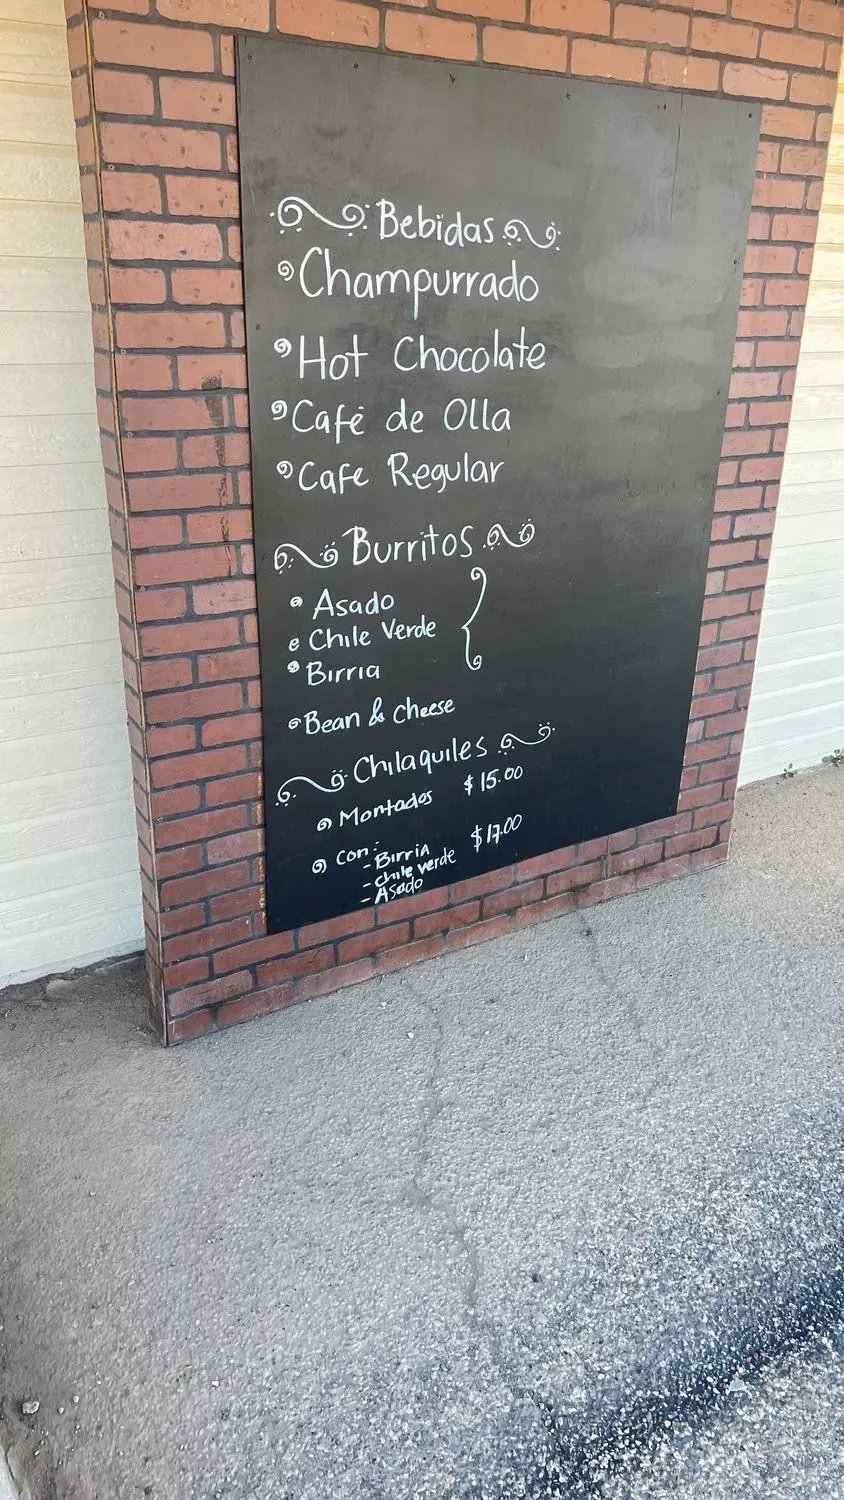 Bebidas
Champurrado
Hot Chocolate
Café de Olla
Cafe Regular
Burritos
Asado
Chile Verde
Birria
Bean & Cheese
Chilaquiles
Montados $15.00
Con: $17.00
- Birria
- Chile verde
- Asado